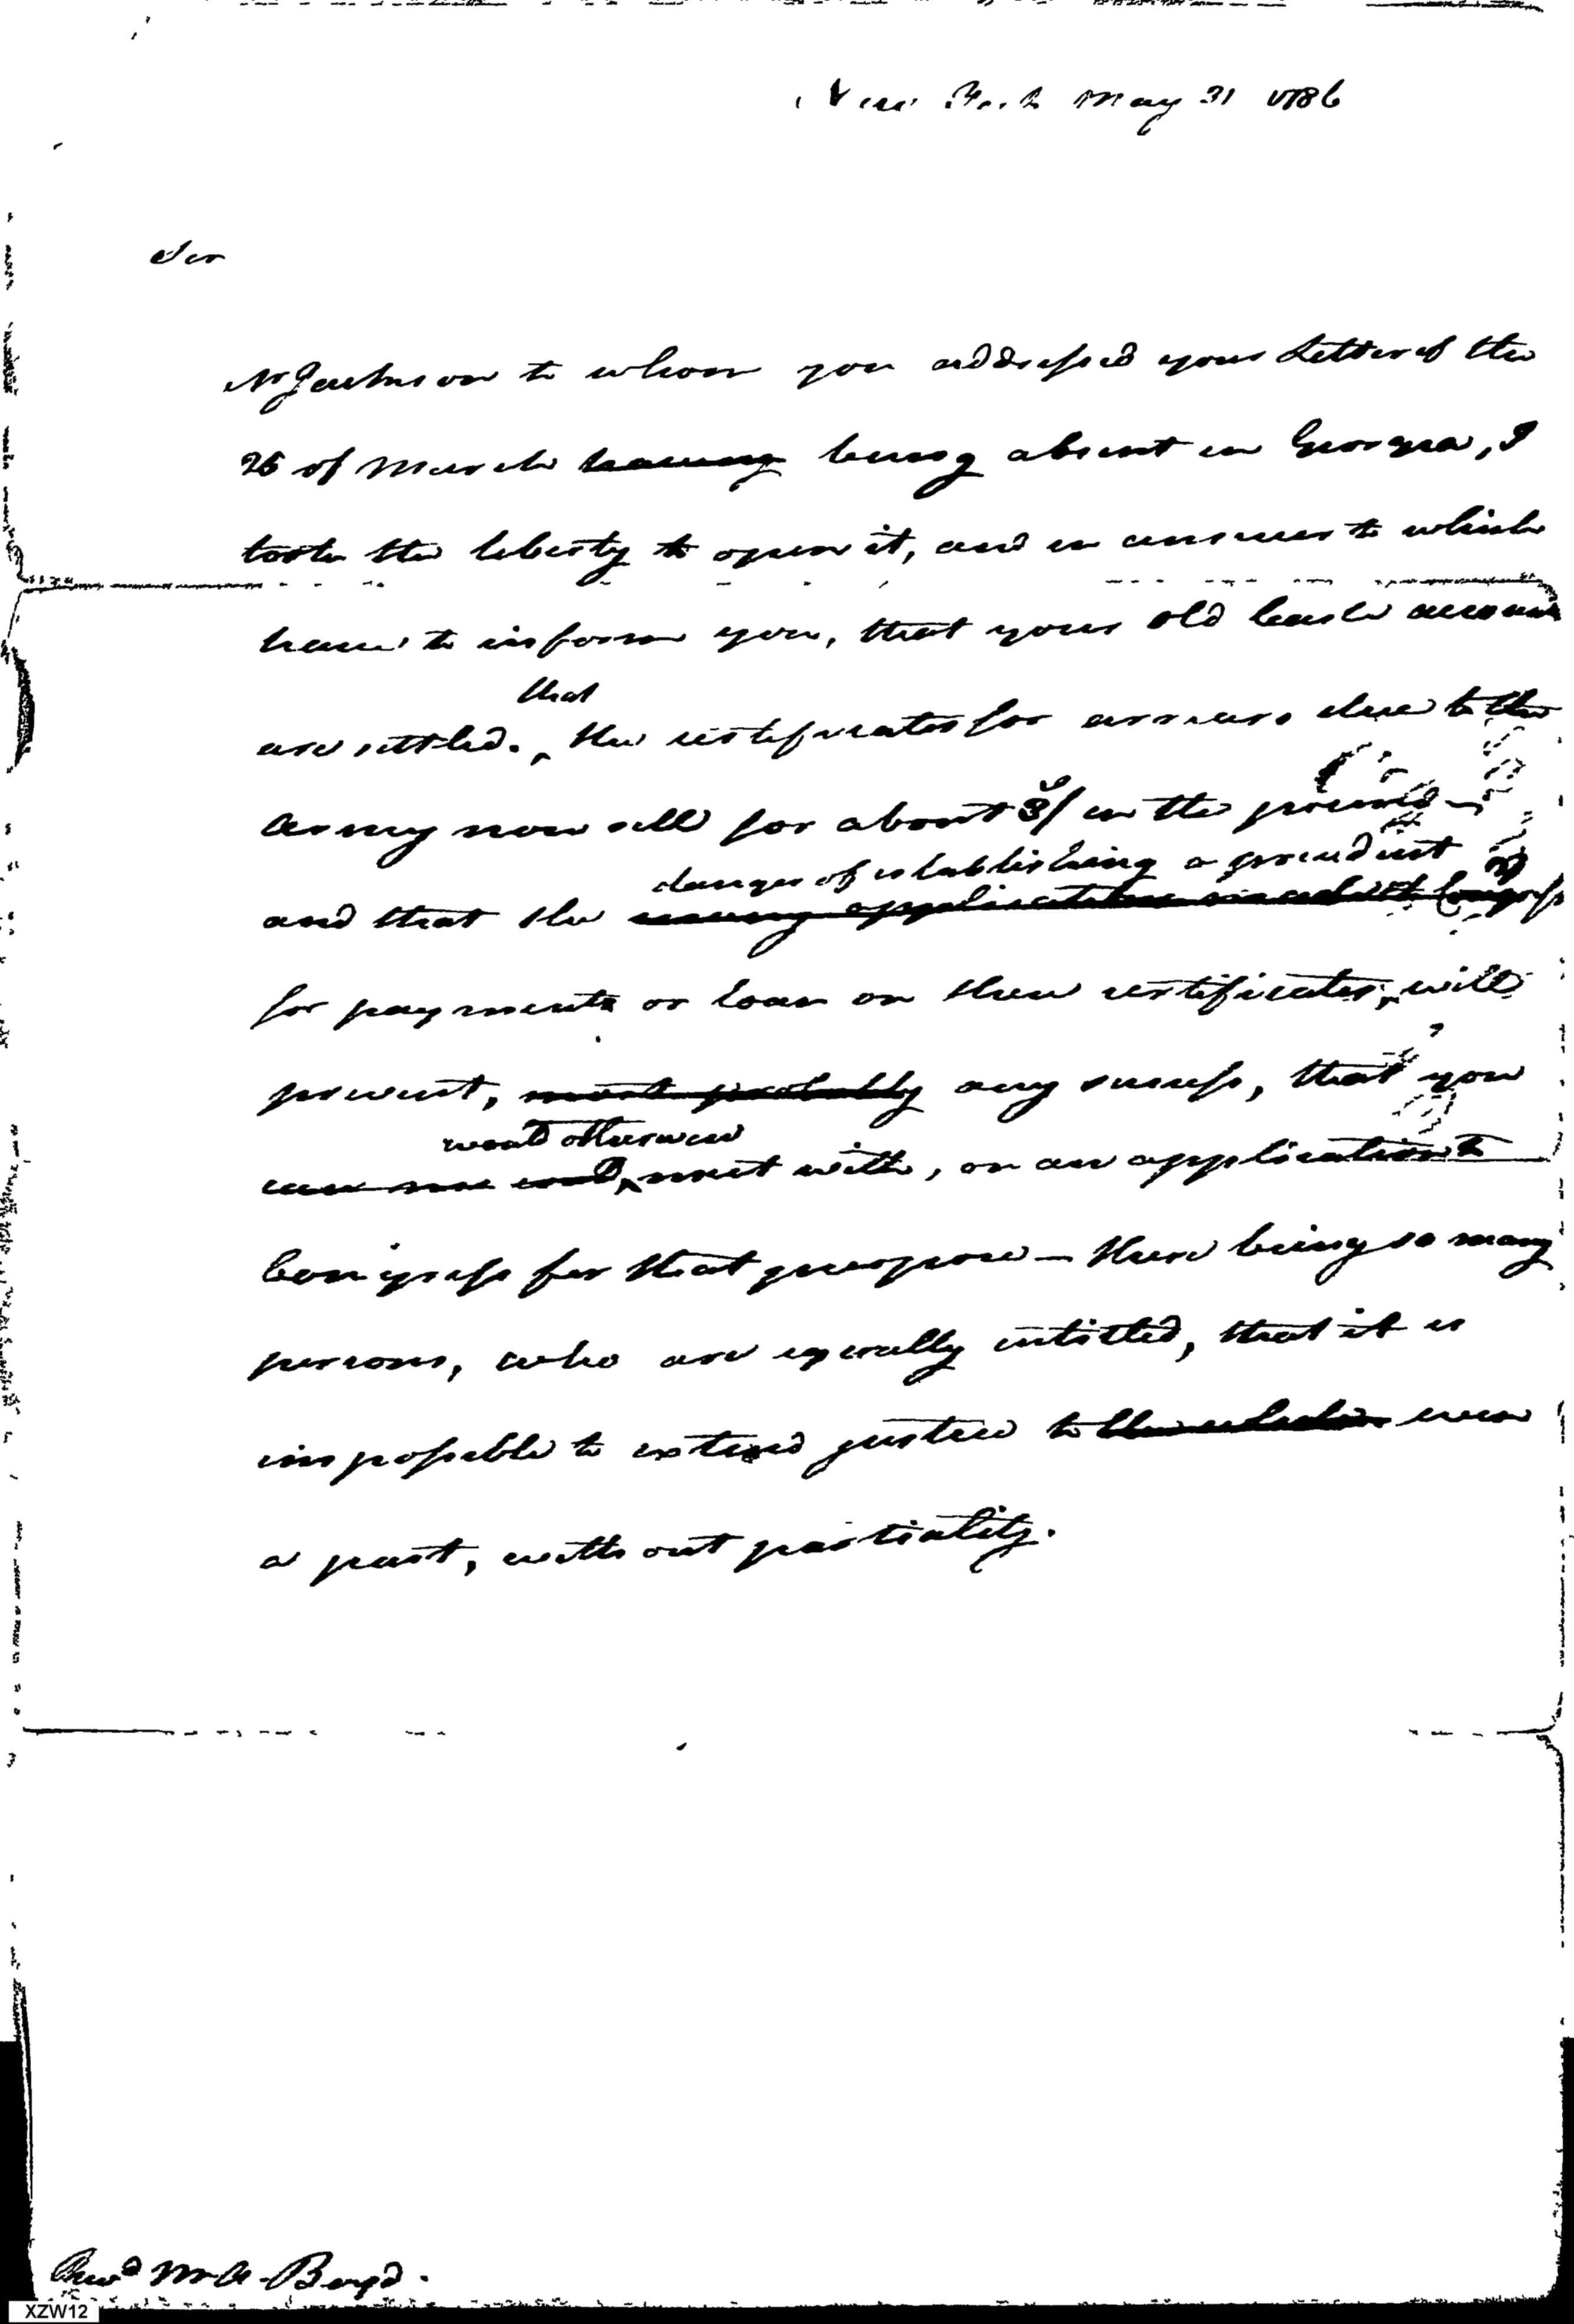 New York May 31 1786
Sir
Mr Jackson to whom you addressed your Letter of the
26 of March having being absent in Georgia, I
took the liberty to open it, and in answer to which
have to inform you, that your old Cash account
that
are settled. the certificates for arrears due to the
Army now sell for about 3/ in the pound —
danger of establishing a precedent
and that the many applications made to Congress
for payments or loan on these certificates, will
prevent, most probably any success, that you
woud otherwise
meet with, on an application to
Congress for that purpose — there being so many
persons, who are equally intitled, that it is
impossible to extend justice to the whole even
a part, without partiality.
Revd Mr A. Boyd.
XZW12